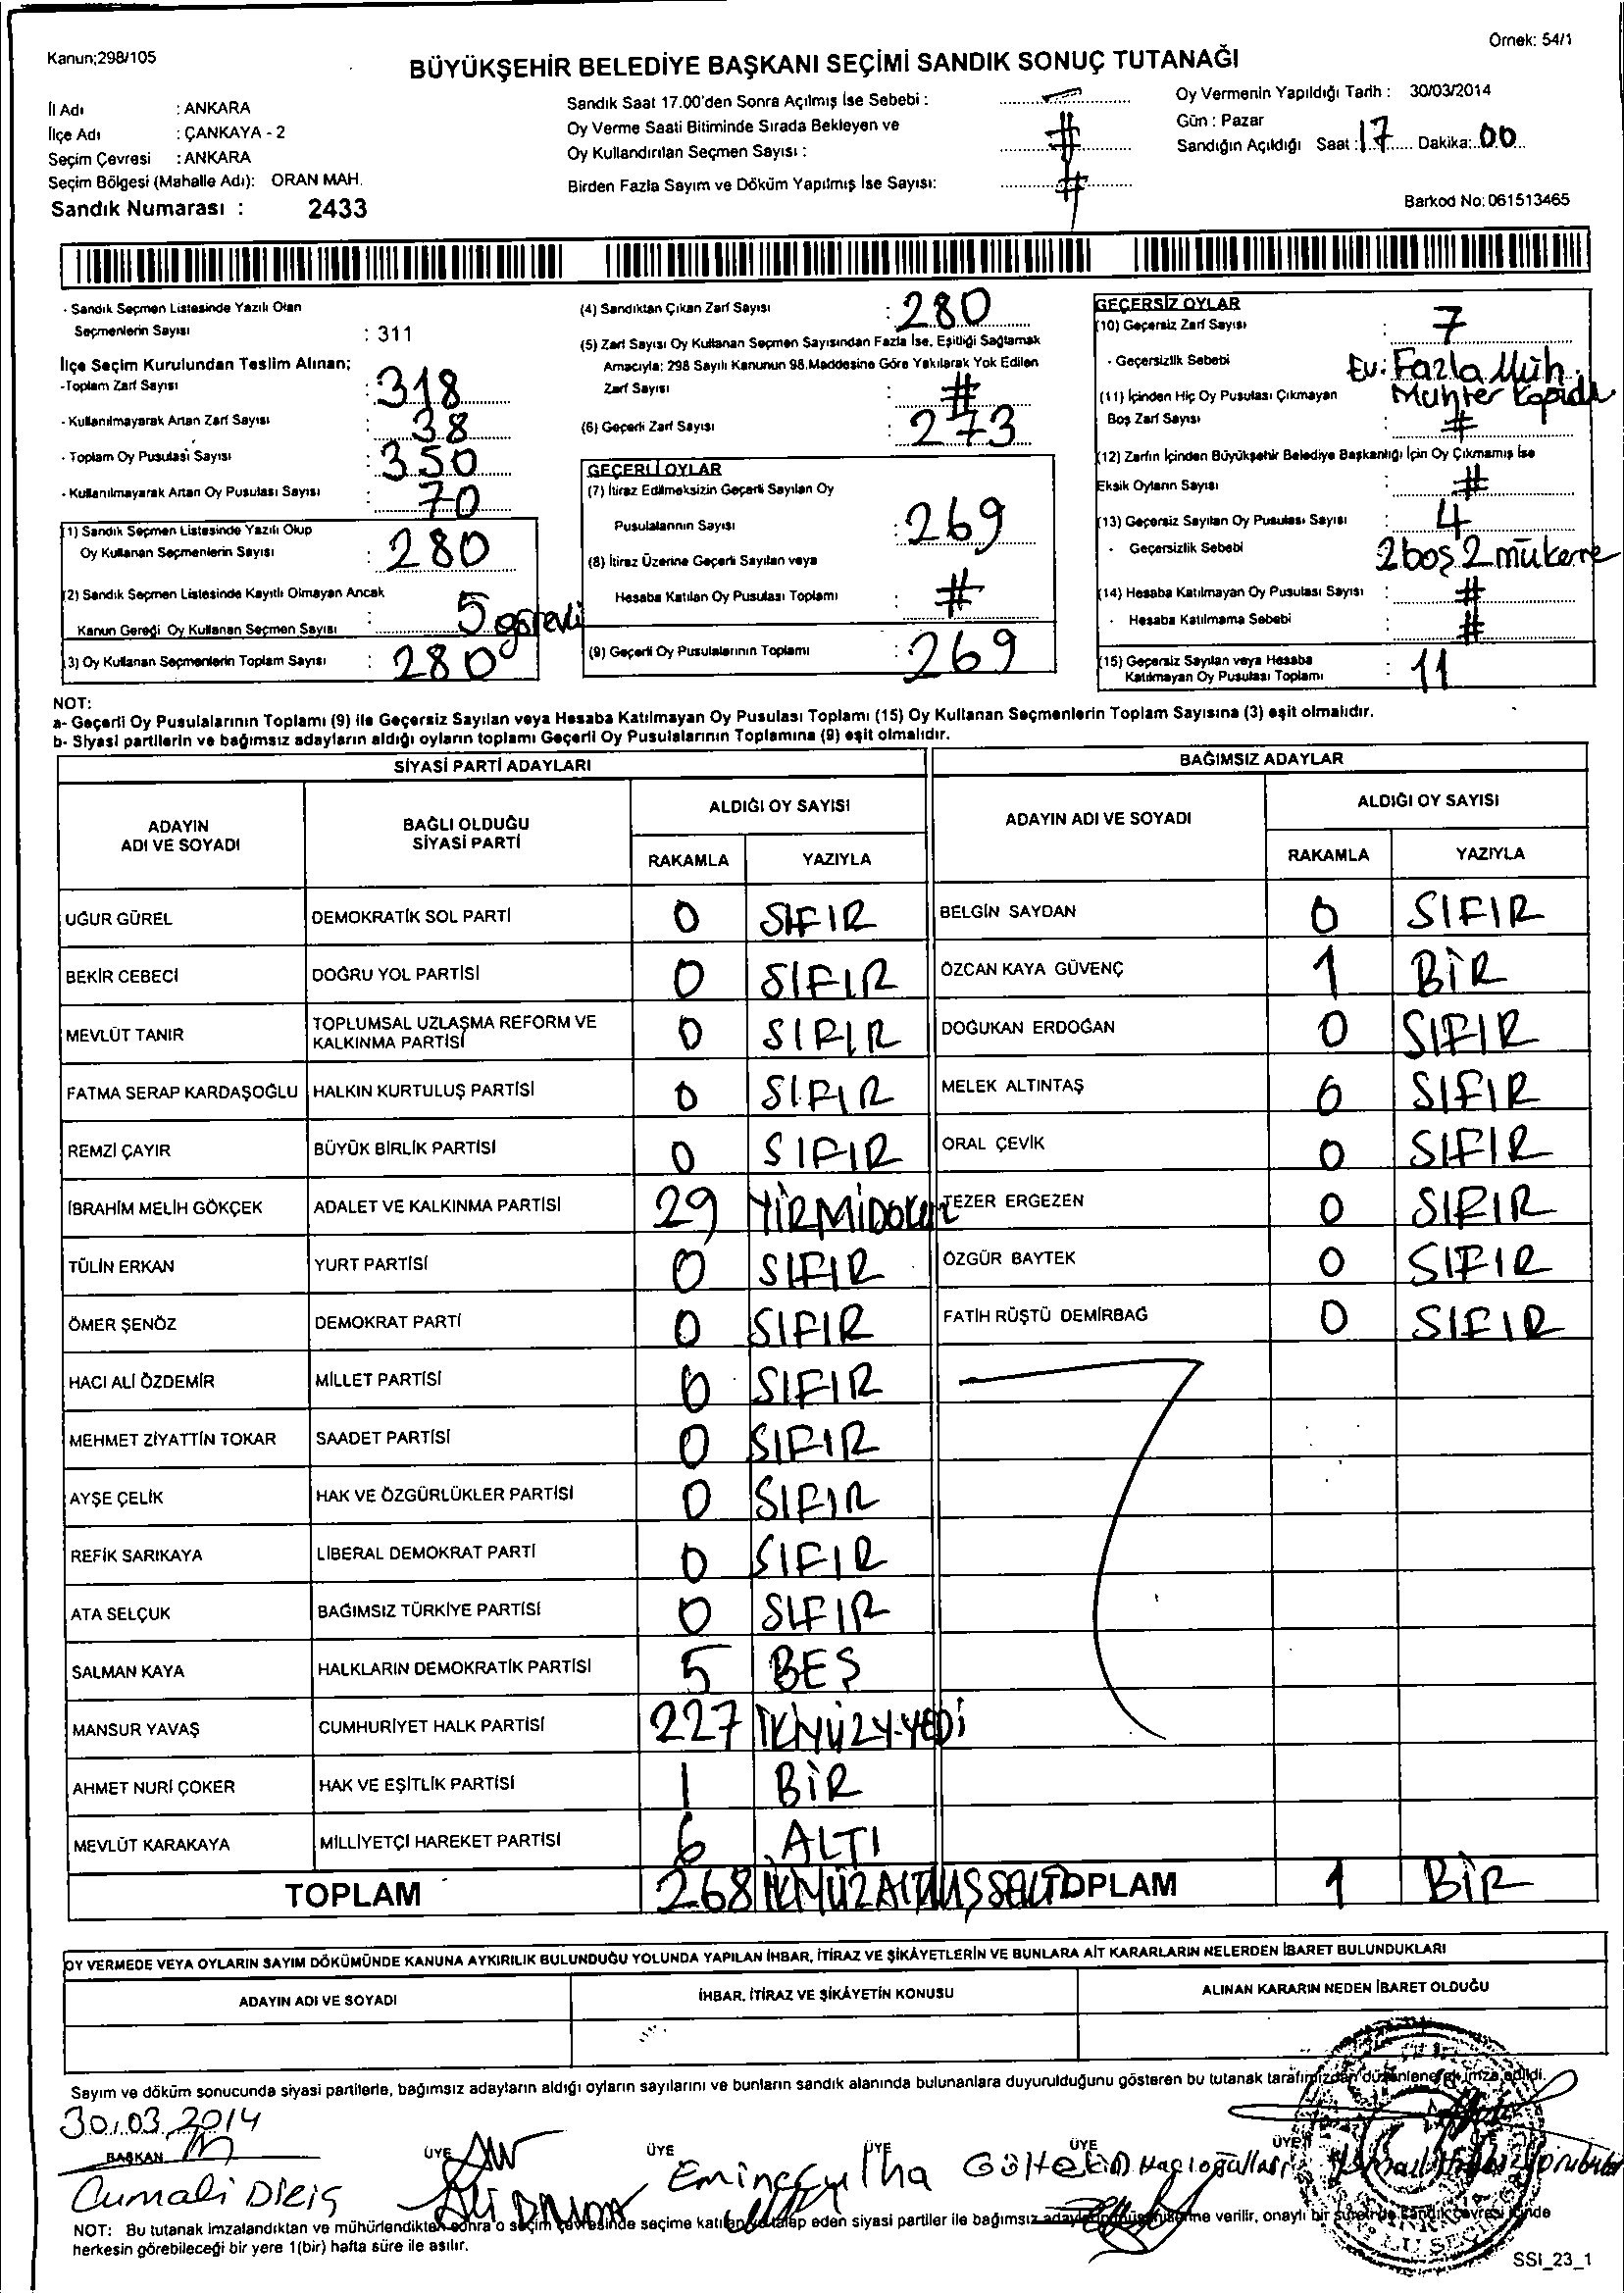 Kanun;298/105
Örnek: 54/1
BÜYÜKŞEHİR BELEDİYE BAŞKANI SEÇİMİ SANDIK SONUÇ TUTANAĞI
İl Adı : ANKARA
İlçe Adı : ÇANKAYA - 2
Seçim Çevresi : ANKARA
Seçim Bölgesi (Mahalle Adı): ORAN MAH.
Sandık Numarası : 2433
Sandık Saat 17.00'den Sonra Açılmış İse Sebebi :
Oy Verme Saati Bitiminde Sırada Bekleyen ve
Oy Kullandırılan Seçmen Sayısı : #
Birden Fazla Sayım ve Döküm Yapılmış İse Sayısı: #
Oy Vermenin Yapıldığı Tarih : 30/03/2014
Gün : Pazar
Sandığın Açıldığı Saat : 17 Dakika: 00
Barkod No: 061513465
- Sandık Seçmen Listesinde Yazılı Olan
Seçmenlerin Sayısı : 311
İlçe Seçim Kurulundan Teslim Alınan;
-Toplam Zarf Sayısı : 318
- Kullanılmayarak Artan Zarf Sayısı : 38
- Toplam Oy Pusulası Sayısı : 350
- Kullanılmayarak Artan Oy Pusulası Sayısı : 70
(1) Sandık Seçmen Listesinde Yazılı Olup
Oy Kullanan Seçmenlerin Sayısı : 280
(2) Sandık Seçmen Listesinde Kayıtlı Olmayan Ancak
Kanun Gereği Oy Kullanan Seçmen Sayısı : 5 görevli
(3) Oy Kullanan Seçmenlerin Toplam Sayısı : 280
(4) Sandıktan Çıkan Zarf Sayısı : 280
(5) Zarf Sayısı Oy Kullanan Seçmen Sayısından Fazla İse, Eşitliği Sağlamak
Amacıyla; 298 Sayılı Kanunun 98.Maddesine Göre Yakılarak Yok Edilen
Zarf Sayısı : #
(6) Geçerli Zarf Sayısı : 273
GEÇERLİ OYLAR
(7) İtiraz Edilmeksizin Geçerli Sayılan Oy
Pusulalarının Sayısı : 269
(8) İtiraz Üzerine Geçerli Sayılan veya
Hesaba Katılan Oy Pusulası Toplamı : #
(9) Geçerli Oy Pusulalarının Toplamı : 269
GEÇERSİZ OYLAR
(10) Geçersiz Zarf Sayısı : 7
- Geçersizlik Sebebi : Fazla Müh.
(11) İçinden Hiç Oy Pusulası Çıkmayan
Boş Zarf Sayısı : #
(12) Zarfın İçinden Büyükşehir Belediye Başkanlığı İçin Oy Çıkmamış İse
Eksik Oyların Sayısı : #
(13) Geçersiz Sayılan Oy Pusulası Sayısı : 4
- Geçersizlik Sebebi 2 boş 2 mükerre
(14) Hesaba Katılmayan Oy Pusulası Sayısı : #
- Hesaba Katılmama Sebebi : #
(15) Geçersiz Sayılan veya Hesaba
Katılmayan Oy Pusulası Toplamı : 11
NOT:
a- Geçerli Oy Pusulalarının Toplamı (9) ile Geçersiz Sayılan veya Hesaba Katılmayan Oy Pusulası Toplamı (15) Oy Kullanan Seçmenlerin Toplam Sayısına (3) eşit olmalıdır.
b- Siyasi partilerin ve bağımsız adayların aldığı oyların toplamı Geçerli Oy Pusulalarının Toplamına (9) eşit olmalıdır.
SİYASİ PARTİ ADAYLARI BAĞIMSIZ ADAYLAR
ADAYIN ADI VE SOYADI BAĞLI OLDUĞU SİYASİ PARTİ ALDIĞI OY SAYISI ADAYIN ADI VE SOYADI ALDIĞI OY SAYISI
RAKAMLA YAZIYLA RAKAMLA YAZIYLA
UĞUR GÜREL DEMOKRATİK SOL PARTİ 0 SIFIR BELGİN SAYDAN 0 SIFIR
BEKİR CEBECİ DOĞRU YOL PARTİSİ 0 SIFIR ÖZCAN KAYA GÜVENÇ 1 BİR
MEVLÜT TANIR TOPLUMSAL UZLAŞMA REFORM VE KALKINMA PARTİSİ 0 SIFIR DOĞUKAN ERDOĞAN 0 SIFIR
FATMA SERAP KARDAŞOĞLU HALKIN KURTULUŞ PARTİSİ 0 SIFIR MELEK ALTINTAŞ 0 SIFIR
REMZİ ÇAYIR BÜYÜK BİRLİK PARTİSİ 0 SIFIR ORAL ÇEVİK 0 SIFIR
İBRAHİM MELİH GÖKÇEK ADALET VE KALKINMA PARTİSİ 29 YİRMİDOKUZ TEZER ERGEZEN 0 SIFIR
TÜLİN ERKAN YURT PARTİSİ 0 SIFIR ÖZGÜR BAYTEK 0 SIFIR
ÖMER ŞENÖZ DEMOKRAT PARTİ 0 SIFIR FATİH RÜŞTÜ DEMİRBAĞ 0 SIFIR
HACI ALİ ÖZDEMİR MİLLET PARTİSİ 0 SIFIR
MEHMET ZİYATTİN TOKAR SAADET PARTİSİ 0 SIFIR
AYŞE ÇELİK HAK VE ÖZGÜRLÜKLER PARTİSİ 0 SIFIR
REFİK SARIKAYA LİBERAL DEMOKRAT PARTİ 0 SIFIR
ATA SELÇUK BAĞIMSIZ TÜRKİYE PARTİSİ 0 SIFIR
SALMAN KAYA HALKLARIN DEMOKRATİK PARTİSİ 5 BEŞ
MANSUR YAVAŞ CUMHURİYET HALK PARTİSİ 227 İKİYÜZY-YEDİ
AHMET NURİ ÇOKER HAK VE EŞİTLİK PARTİSİ 1 BİR
MEVLÜT KARAKAYA MİLLİYETÇİ HAREKET PARTİSİ 6 ALTI
TOPLAM 268 TOPLAM 1 BİR
OY VERMEDE VEYA OYLARIN SAYIM DÖKÜMÜNDE KANUNA AYKIRILIK BULUNDUĞU YOLUNDA YAPILAN İHBAR, İTİRAZ VE ŞİKÂYETLERİN VE BUNLARA AİT KARARLARIN NELERDEN İBARET BULUNDUKLARI
ADAYIN ADI VE SOYADI İHBAR, İTİRAZ VE ŞİKÂYETİN KONUSU ALINAN KARARIN NEDEN İBARET OLDUĞU
Sayım ve döküm sonucunda siyasi partilerle, bağımsız adayların aldığı oyların sayılarını ve bunların sandık alanında bulunanlara duyurulduğunu gösteren bu tutanak tarafımızdan düzenlenerek imza edildi.
30.03.2014
BAŞKAN ÜYE ÜYE ÜYE ÜYE ÜYE
Cumali
NOT: Bu tutanak imzalandıktan ve mühürlendikten sonra o seçim çevresinde seçime katılan ve talep eden siyasi partiler ile bağımsız verilir, onaylı bir
herkesin görebileceği bir yere 1(bir) hafta süre ile asılır.
SSI_23_1